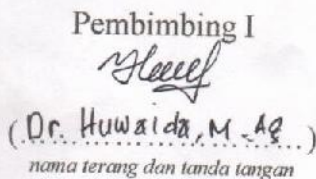 Pembimbing I
(Dr. Huwaida, M.Ag)
nama terang dan tanda tangan